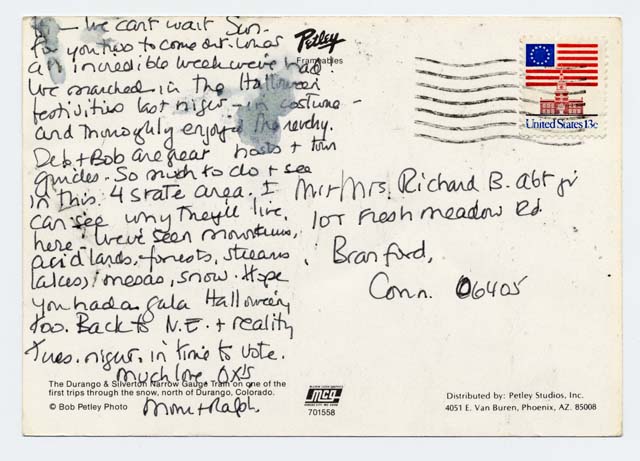 We can't wait
for you two to come out. What
an incredible week we've had!
We marched in the Halloween
festivities last night - in costume -
and thoroughly enjoyed the revelry.
Deb + Bob are great hosts + tour
guides. So much to do + see
in this 4 state area. I
can see why they'll live
here. We've seen mountains,
acid lands, forests, streams,
lakes, mesas, snow. Hope
you had a gala Halloween
too. Back to N.E. + reality
Tues. night, in time to vote.
Much love OX's
Mom + Ralph.
The Durango & Silverton Narrow Gauge Train on one of the
first trips through the snow, north of Durango, Colorado.
© Bob Petley Photo
Petley
Frameables
MCG
701558
United States 13c
Mr + Mrs. Richard B. Abt jr
Fresh Meadow Rd.
Branford,
Conn. 06405
Distributed by: Petley Studios, Inc.
4051 E. Van Buren, Phoenix, AZ. 85008